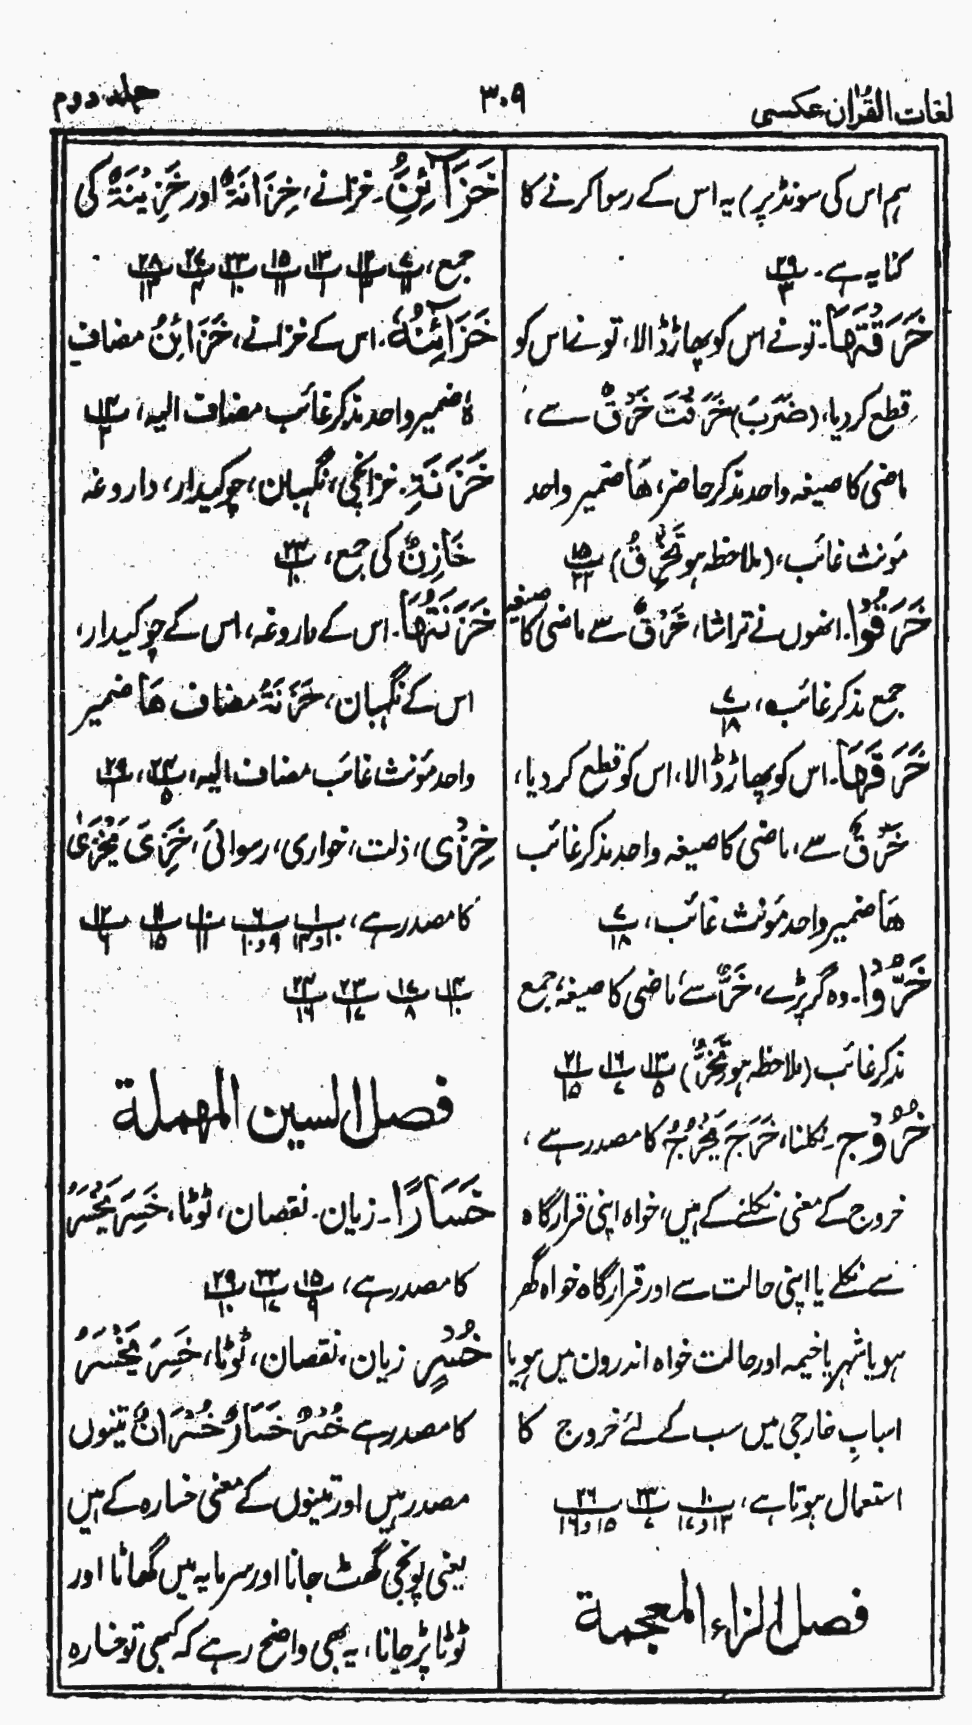 لغات القرآن عکسی
۳۰۹
جلد دوم
ہم اس کی سونڈ پر) یہ اس کے رسوا کرنے کا
کنایہ ہے۔ ۲۹/۳
خَرَقْتَهَا۔ تو نے اس کو پھاڑ ڈالا، تو نے اس کو
قطع کر دیا، (ضَرَبَ) خَرَقْتَ خَرْقٌ سے،
ماضی کا صیغہ واحد مذکر حاضر، هَا ضمیر واحد
مونث غائب، (ملاحظہ ہو تَخْرِقُ) ۱۵/۲۲
خَرَقُوْا۔ انھوں نے تراشا، خَرْقٌ سے ماضی کا صیغہ
جمع مذکر غائب، ۷/۱۸
خَرَقَهَا۔ اس کو پھاڑ ڈالا، اس کو قطع کر دیا،
خَرْقٌ سے، ماضی کا صیغہ واحد مذکر غائب
هَا ضمیر واحد مونث غائب، ۷/۱۸
خَرُّوْا۔ وہ گر پڑے، خَرٌّ سے ماضی کا صیغہ، جمع
مذکر غائب (ملاحظہ ہو تَخِرُّ) ۱۳/۵ ۱۶/۷ ۲۱/۱۵
خُرُوْج۔ نکلنا، خَرَجَ يَخْرُجُ کا مصدر ہے،
خروج کے معنی نکلنے کے ہیں، خواہ اپنی قرار گاہ
سے نکلے یا اپنی حالت سے اور قرار گاہ خواہ گھر
ہو یا شہر یا خیمہ اور حالت خواہ اندرون میں ہو یا
اسبابِ خارجی میں سب کے لئے خروج کا
استعمال ہوتا ہے، ۱۰/۱۳و۱۷ ۲۳/۷ ۲۶/۱۵و۱۶
فصل الزاء المعجمة
خَزَآئِنُ۔ خزانے، خِزَانَةٌ اور خَزِيْنَةٌ کی
جمع، ۷/۱۱ ۱۲/۲ ۱۳/۱ ۱۵/۱۱ ۲۳/۱۰ ۲۷/۴ ۲۸/۱۳
خَزَآئِنُهٗ۔ اس کے خزانے، خَزَائِنُ مضاف
هٗ ضمیر واحد مذکر غائب مضاف الیہ، ۱۴/۲
خَزَنَةِ۔ خزانچی، نگہبان، چوکیدار، داروغہ
خَازِنٌ کی جمع، ۲۴/۱۰
خَزَنَتُهَا۔ اس کے داروغہ، اس کے چوکیدار،
اس کے نگہبان، خَزَنَةُ مضاف هَا ضمیر
واحد مونث غائب مضاف الیہ، ۲۴/۵، ۲۹/۱
خِزْی، ذلت، خواری، رسوائی، خَزِیَ يَخْزٰی
کا مصدر ہے، ۱/۱۰و۱۴ ۶/۹و۱۰ ۱۰/۱۱ ۱۱/۱۵ ۱۲/۶
۱۴/۱۰ ۱۷/۸ ۲۳/۱۷ ۲۴/۱۶
فصل السين المهملة
خَسَارًا۔ زیان۔ نقصان، ٹوٹا، خَسِرَ يَخْسَرُ
کا مصدر ہے، ۱۵/۹ ۲۲/۱۷ ۲۹/۱۰
خُسْرٍ زیان، نقصان، ٹوٹا، خَسِرَ يَخْسَرُ
کا مصدر ہے خُسْرٌ خَسَارٌ خُسْرَانٌ تینوں
مصدر ہیں اور تینوں کے معنی خسارہ کے ہیں
یعنی پونجی گھٹ جانا اور سرمایہ میں گھاٹا اور
ٹوٹا پڑ جانا، یہ بھی واضح رہے کہ کبھی تو خسارہ